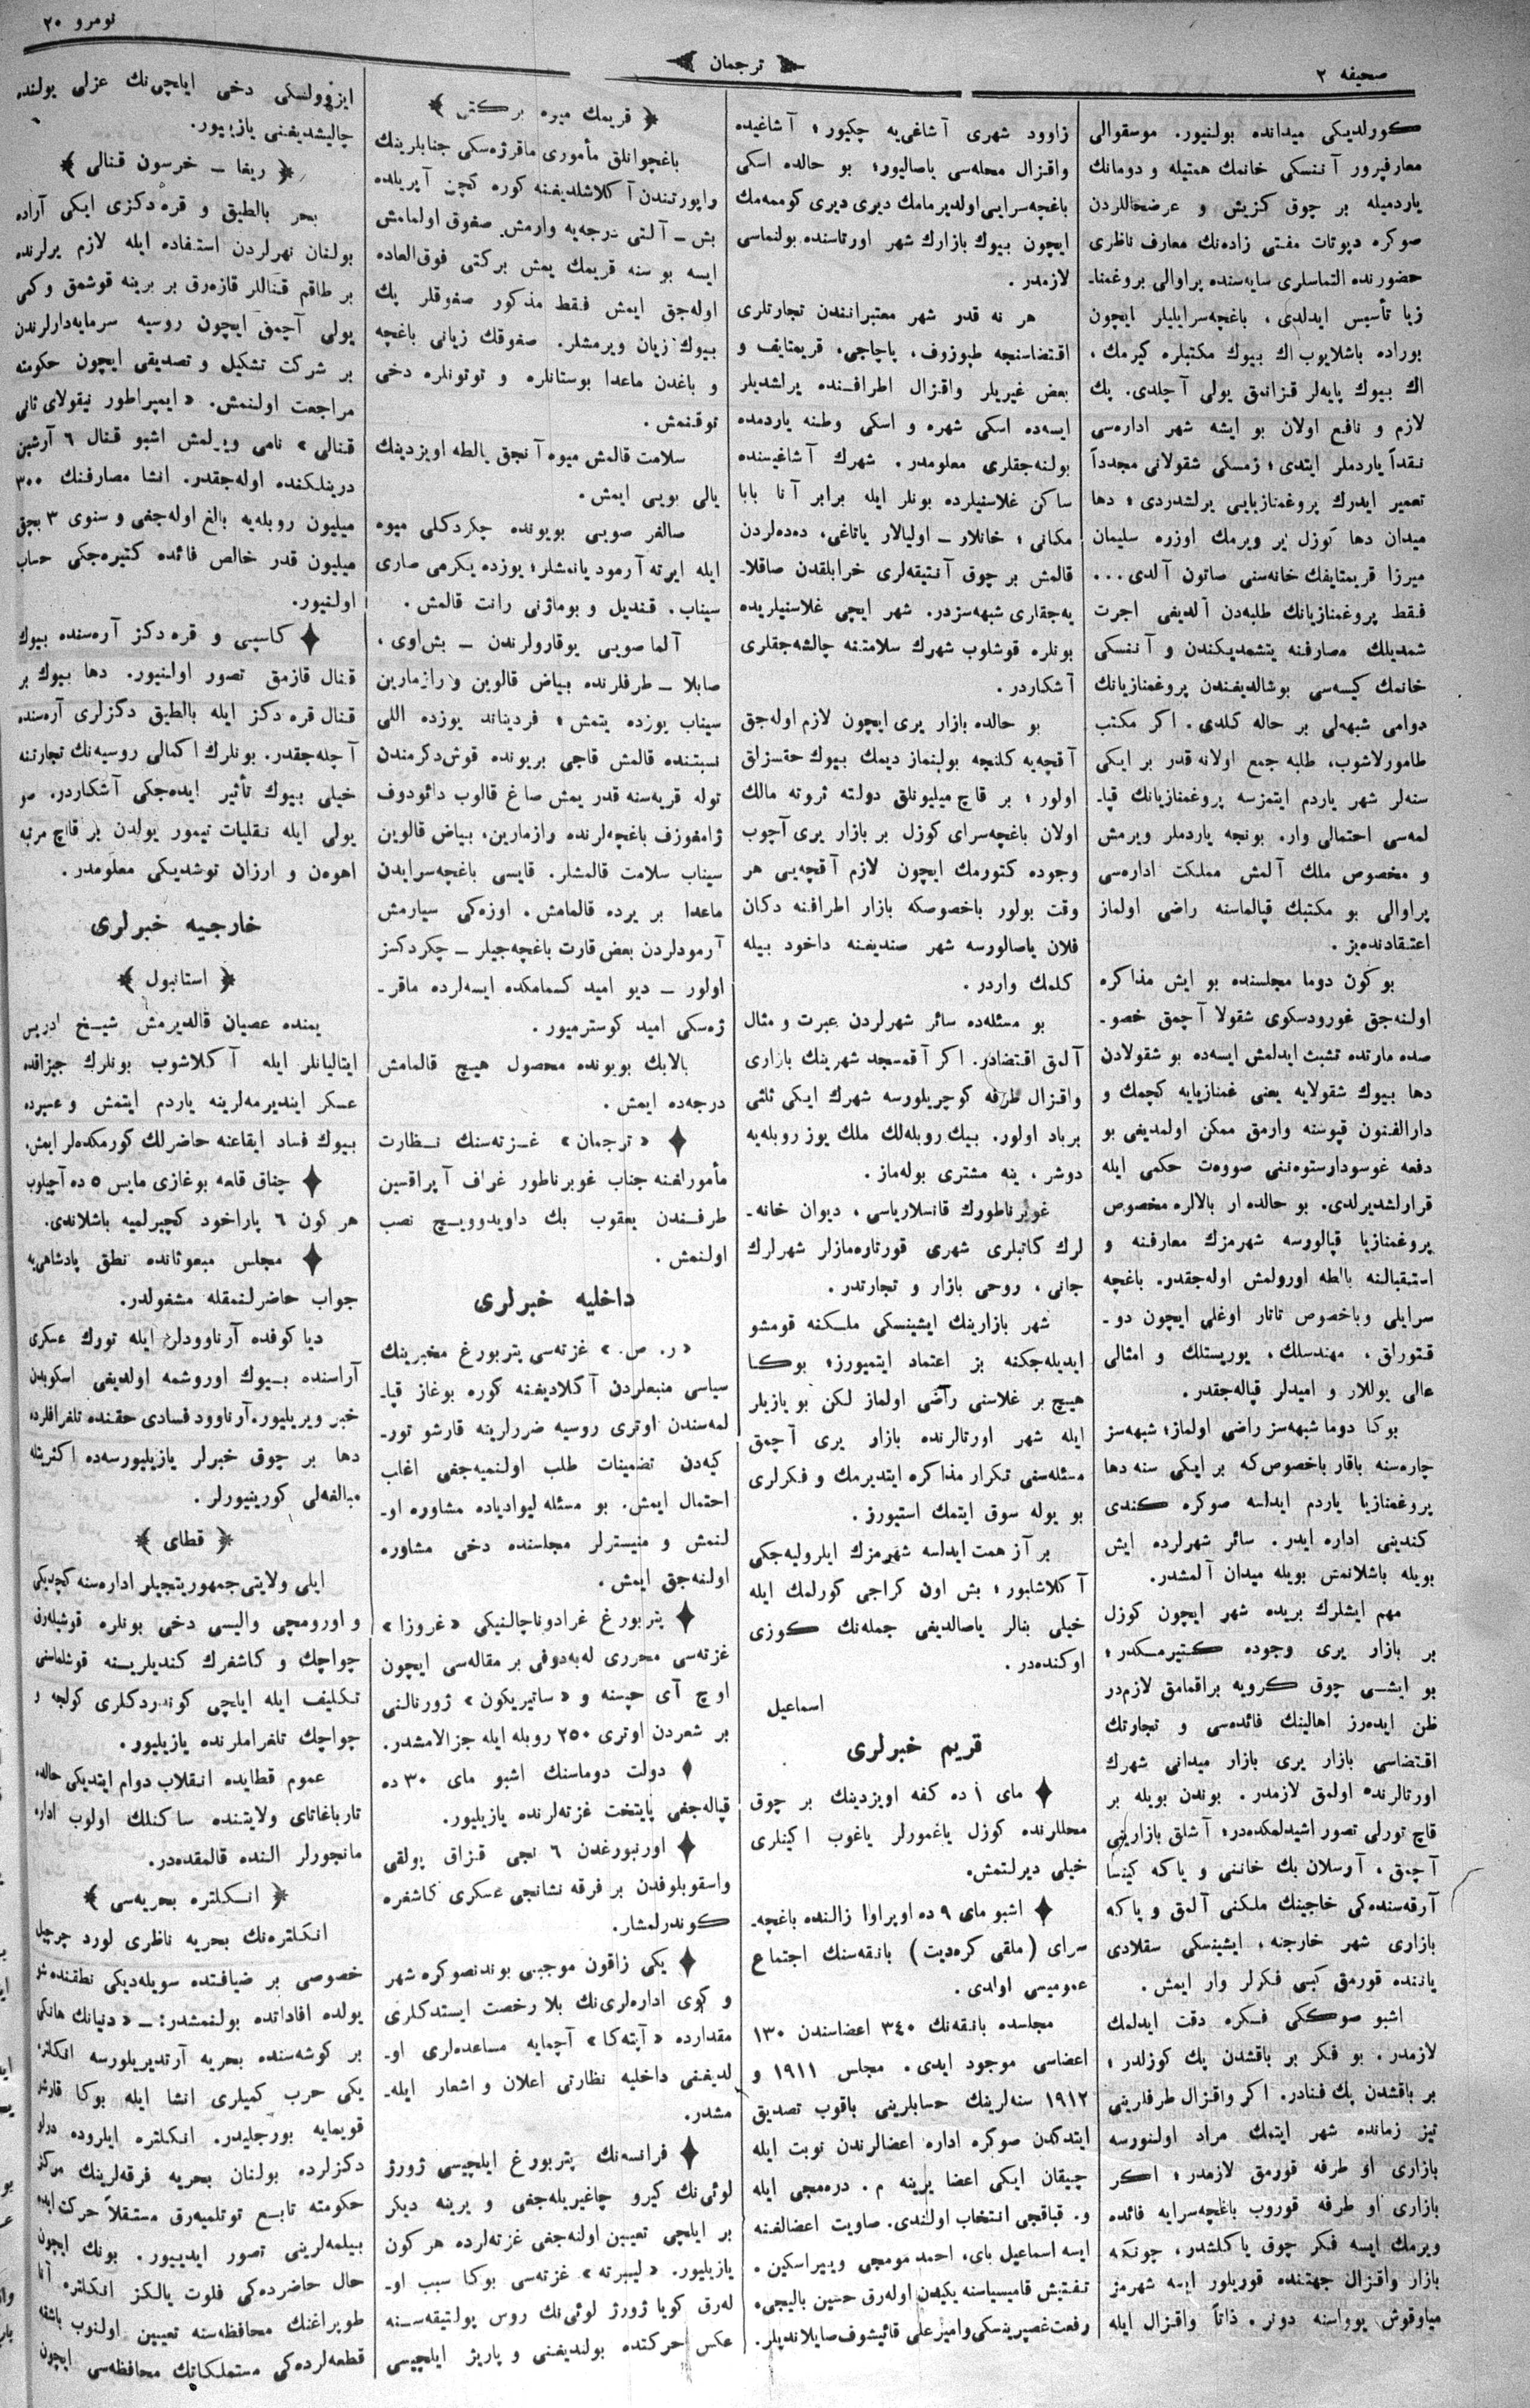 صحیفه ۲
ترجمان
نومرو ۲۰
كورلدیكی میدانده بولنیور. موسقوالی
معارفپرور آننسكی خانمك همتیله و دومانك
یاردمیله بر چوق كزیش و عرضحاللردن
صوكره دپوتات مفتی زاده‌نك معارف ناظری
حضورنده التماسلری سایه‌سنده پراوالی بروغمنا-
زیا تأسیس ایدلدی، باغچه‌سرایلیلر ایچون
بوراده باشلایوب اك بیوك مكتبلره كیرمك،
اك بیوك پایه‌لر قزانمق یولی آچلدی. پك
لازم و نافع اولان بو ایشه شهر اداره‌سی
نقداً یاردملر ایتدی؛ زمسكی شقولانی مجدداً
تعمیر ایدرك پروغمنازیایی یرلشدردی؛ دها
میدان دها كوزل یر ویرمك اوزره سلیمان
میرزا قریمتایفك خانه‌سنی صاتون آلدی...
فقط پروغمنازیانك طلبه‌دن آلدیغی اجرت
شمدیلك مصارفنه یتشمدیكندن و آننسكی
خانمك كیسه‌سی بوشالدیغندن پروغمنازیانك
دوامی شبهه‌لی بر حاله كلدی. اكر مكتب
طامورلاشوب، طلبه جمع اولانه قدر بر ایكی
سنه‌لر شهر یاردم ایتمزسه پروغمنازیانك قپا-
لمه‌سی احتمالی وار. بونجه یاردملر ویرمش
و مخصوص ملك آلمش مملكت اداره‌سی
پراوالی بو مكتبك قپالماسنه راضی اولماز
اعتقادنده‌یز.
بو كون دوما مجلسنده بو ایش مذاكره
اولنه‌جق غورودسكوی شقولا آچمق خصو-
صده مارتده تشبث ایدلمش ایسه‌ده بو شقولادن
دها بیوك شقولایه یعنی غمنازیایه كچمك و
دارالفنون قپوسنه وارمق ممكن اولمدیغی بو
دفعه غوسودارستوه‌ننی صووه‌ت حكمی ایله
قرارلشدیرلدی. بو حالده ار بالالره مخصوص
پروغمنازیا قپالورسه شهرمزك معارفنه و
استقبالنه بالطه اورولمش اوله‌جقدر. باغچه
سرایلی وباخصوص تاتار اوغلی ایچون دو-
قتوراق، مهندسلك، یوریستلك و امثالی
عالی یوللار و امیدلر قپاله‌جقدر.
بوكا دوما شبهه‌سز راضی اولماز؛ شبهه‌سز
چاره‌سنه باقار باخصوص كه بر ایكی سنه دها
پروغمنازیا یاردم ایدلسه صوكره كندی
كندینی اداره ایدر. سائر شهرلرده ایش
بویله باشلانمش بویله میدان آلمشدر.
مهم ایشلرك بریده شهر ایچون كوزل
بر بازار یری وجوده كتیرمكدر؛
بو ایشی چوق كرویه براقمامق لازمدر
ظن ایده‌رز اهالینك فائده‌سی و تجارتك
اقتضاسی بازار یری بازار میدانی شهرك
اورتالرنده اولمق لازمدر. بوندن بویله بر
قاچ تورلی تصور اشیدلمكده‌در؛ آشلق بازارینی
آچمق، آرسلان بك خاننی و یا كه كینسا
آرقه‌سنده‌كی خاجینك ملكنی آلمق و یا كه
بازاری شهر خارجنه، ایشینسكی سقلادی
یاننده قورمق كبی فكرلر وار ایمش.
اشبو صوككی فكره دقت ایدلمك
لازمدر. بو فكر بر باقشدن پك كوزلدر؛
بر باقشدن پك فنادر. اكر واقزال طرفلرینی
تیز زمانده شهر ایتمك مراد اولنورسه
بازاری او طرفه قورمق لازمدر؛ اكر
بازاری او طرفه قوروب باغچه‌سرایه فائده
ویرمك ایسه فكر چوق یاكلشدر، چونكه
بازار واقزال جهتنده قوریلور ایسه شهرمز
میاوقوش یوواسنه دونر. ذاتاً واقزال ایله
زاوود شهری آشاغی‌یه چكیور؛ آشاغیده
واقزال محله‌سی یاصالیور؛ بو حالده اسكی
باغچه‌سرایی اولدیرمامك دیری دیری كوممه‌مك
ایچون بیوك بازارك شهر اورتاسنده بولنماسی
لازمدر.
هر نه قدر شهر معتبراتندن تجارتلری
اقتضاسنجه طیوزوف، پاچاجی، قریمتایف و
بعض غیریلر واقزال اطرافنده یراشدیلر
ایسه‌ده اسكی شهره و اسكی وطنه یاردمده
بولنه‌جقلری معلومدر. شهرك آشاغیسنده
ساكن غلاسنیلرده بونلر ایله برابر آنا بابا
مكانی؛ خانلار ــ اولیالار یاتاغی، ده‌ده‌لردن
قالمش بر چوق آنتیقه‌لری خرابلقدن صاقلا-
یه‌جقاری شبهه‌سزدر. شهر ایچی غلاسنیلریده
بونلره قوشلوب شهرك سلامتنه چالشه‌جقلری
آشكاردر.
بو حالده بازار یری ایچون لازم اوله‌جق
آقچه‌یه كلنجه بولنماز دیمك بیوك حقسزلق
اولور؛ بر قاچ میلیونلق دولته ثروته مالك
اولان باغچه‌سرای كوزل بر بازار یری آچوب
وجوده كتورمك ایچون لازم آقچه‌یی هر
وقت بولور باخصوصكه بازار اطرافنه دكان
فلان یاصالورسه شهر صندیغنه داخود بیله
كلمك واردر.
بو مسئله‌ده سائر شهرلردن عبرت و مثال
آلمق اقتضادر. اكر آقمسجد شهرینك بازاری
واقزال طرفه كوچریلورسه شهرك ایكی ثلثی
برباد اولور. بیك روبله‌لك ملك یوز روبله‌یه
دوشر، ینه مشتری بوله‌ماز.
غوبرناطورك قانسلاریاسی، دیوان خانه-
لرك كاتبلری شهری قورتاره‌مازلر شهرلرك
جانی، روحی بازار و تجارتدر.
شهر بازارینك ایشینسكی ملكنه قومشو
ایدیله‌جكنه بز اعتماد ایتمیورز؛ بوكا
هیچ بر غلاسنی راضی اولماز لكن بو یازیلر
ایله شهر اورتالرنده بازار یری آچمق
مسئله‌سنی تكرار مذاكره ایتدیرمك و فكرلری
بو یوله سوق ایتمك استیورز.
بر آز همت ایدلسه شهرمزك ایلرولیه‌جكی
آكلاشلیور؛ بش اون كراجی كورلمك ایله
خیلی بنالر یاصالدیغی جمله‌نك كوزی
اوكنده‌در.
اسماعیل
قریم خبرلری
مای ۱ ده كفه اویزدینك بر چوق
محللرنده كوزل یاغمورلر یاغوب اكینلری
خیلی دیرلتمش.
اشبو مای ۹ ده اوپراوا زالنده باغچه-
سرای (ملقی كره‌دیت) بانقه‌سنك اجتماع
عمومیسی اولدی.
مجلسده بانقه‌نك ۳٤۰ اعضاسندن ۱۳۰
اعضاسی موجود ایدی. مجلس ۱۹۱۱ و
۱۹۱۲ سنه‌لرینك حسابلرینی باقوب تصدیق
ایتدكدن صوكره اداره اعضالرندن نوبت ایله
چیقان ایكی اعضا یرینه م. دره‌مجی ایله
و. قباقجی انتخاب اولندی. صاویت اعضالغنه
ایسه اسماعیل بای، احمد مومجی و پیراسكین.
تفتیش قامیسیاسنه یكیدن اوله‌رق حسین بالیجی،
رفعت غصپرینسكی و امیرعلی قائیشوف صایلاندیلر.
قریمك میوه بركتی
باغچوانلق مأموری ماقرژه‌سكی جنابلرینك
راپورتندن آكلاشلدیغنه كوره كچن آپریلده
بش ــ آلتی درجه‌یه وارمش صغوق اولمامش
ایسه بو سنه قریمك یمش بركتی فوق‌العاده
اوله‌جق ایمش فقط مذكور صغوقلر پك
بیوك زیان ویرمشلر. صغوقك زیانی باغچه
و باغدن ماعدا بوستانلره و توتونلره دخی
توقنمش.
سلامت قالمش میوه آنجق یالطه اویزدینك
یالی بویی ایمش.
صالغر صویی بویونده چكردكلی میوه
ایله ایرته آرمود یانمشلر؛ یوزده یكرمی صاری
سیناپ. قندیل و بوماژنی رانت قالمش.
آلما صویی یوقارولرندن ــ بش‌اوی،
صابلا ــ طرفلرنده بیاض قالوین و رازمارین
سیناب یوزده یتمش؛ فردیناند یوزده اللی
نسبتنده قالمش قاچی بریونده قوش‌دكرمندن
توله قریه‌سنه قدر یمش صاغ قالوب دائودوف
ژامغوزف باغچه‌لرنده رازمارین، بیاض قالوین
سیناب سلامت قالمشلر. قایسی باغچه‌سرایدن
ماعدا بر یرده قالمامش. اوزه‌كی سیارمش
آرمودلردن بعض قارت باغچه‌جیلر ــ چكردكسز
اولور ــ دیو امید كسمامكده ایسه‌لرده ماقر-
ژه‌سكی امید كوسترمیور.
بالابك بویونده محصول هیچ قالمامش
درجه‌ده ایمش.
«ترجمان» غزته‌سنك نظارت
مأمورلغنه جناب غوبرناطور غراف آپراقسین
طرفندن یعقوب بك داویدوویچ نصب
اولنمش.
داخلیه خبرلری
«ر. ص.» غزته‌سی پتربورغ مخبرینك
سیاسی منبعلردن آكلادیغنه كوره بوغاز قپا-
لمه‌سندن اوتری روسیه ضررلرینه قارشو تور-
كیه‌دن تضمینات طلب اولنمیه‌جغی اغلب
احتمال ایمش. بو مسئله لیوادیاده مشاوره او-
لنمش و منیسترلر مجلسنده دخی مشاوره
اولنه‌جق ایمش.
پتربورغ غرادوناچالنیكی «غروزا»
غزته‌سی محرری له‌به‌دوفی بر مقاله‌سی ایچون
اوچ آی حپسنه و «ساتیریكون» ژورنالنی
بر شعردن اوتری ۲۵۰ روبله ایله جزالامشدر.
دولت دوماسنك اشبو مای ۳۰ ده
قپاله‌جغی پایتخت غزته‌لرنده یازیلیور.
اورنبورغدن ٦ نجی قزاق پولقی
واسقوبلوفدن بر فرقه نشانجی عسكری كاشغره
كوندرلمشلر.
یكی زاقون موجبی بوندنصوكره شهر
و كوی اداره‌لری‌نك بلا رخصت ایستدكلری
مقدارده «آپته‌كا» آچمایه مساعده‌لری او-
لدیغنی داخلیه نظارتی اعلان و اشعار ایله-
مشدر.
فرانسه‌نك پتربورغ ایلچیسی ژورژ
لوئی‌نك كیرو چاغیریله‌جغی و یرینه دیكر
بر ایلچی تعیین اولنه‌جغی غزته‌لرده هر كون
یازیلیور. «لیبرته» غزته‌سی بوكا سبب او-
له‌رق كویا ژورژ لوئی‌نك روس پولتیقه‌سنه
عكس حركتده بولندیغنی و پاریژ ایلچیسی
ایزوولسكی دخی ایلچی‌نك عزلی یولنده
چالیشدیغنی یازییور.
ریغا ــ خرسون قنالی
بحر بالطیق و قره دكزی ایكی آراده
بولنان نهرلردن استفاده ایله لازم یرلرنده
بر طاقم قناللر قازه‌رق بر برینه قوشمق و كمی
یولی آچمق ایچون روسیه سرمایه‌دارلرندن
بر شركت تشكیل و تصدیقی ایچون حكومته
مراجعت اولنمش. «ایمپراطور نیقولای ثانی
قنالی» نامی ویرلمش اشبو قنال ٦ آرشین
درینلكنده اوله‌جقدر. انشا مصارفنك ۳۰۰
میلیون روبله‌یه بالغ اوله‌جغی و سنوی ۳ بچق
میلیون قدر خالص فائده كتیره‌جكی حساب
اولنیور.
كاسپی و قره دكز آره‌سنده بیوك
قنال قازمق تصور اولنیور. دها بیوك بر
قنال قره دكز ایله بالطیق دكزلری آره‌سنده
آچله‌جقدر. بونلرك اكمالی روسیه‌نك تجارتنه
خیلی بیوك تأثیر ایده‌جكی آشكاردر. صو
یولی ایله نقلیات تیمور یولدن بر قاچ مرتبه
اهون و ارزان توشدیكی معلومدر.
خارجیه خبرلری
استانبول
یمنده عصیان قالدیرمش شیخ ادریس
ایتالیانلر ایله آكلاشوب بونلرك جیزاقده
عسكر ایندیرمه‌لرینه یاردم ایتمش و عسیرده
بیوك فساد ایقاعنه حاضرلك كورمكده‌لر ایمش.
چناق قلعه بوغازی مایس ۵ ده آچیلوب
هر كون ٦ پاراخود كچیرلمیه باشلاندی.
مجلس مبعوثانده نطق پادشاهی‌یه
جواب حاضرلنمقله مشغولدر.
دیاكوفده آرناوودلر ایله تورك عسكری
آراسنده بیوك اوروشمه اولدیغی اسكوبدن
خبر ویریلیور. آرناوود فسادی حقنده تلغرافلرده
دها بر چوق خبرلر یازیلیورسه‌ده اكثریتله
مبالغه‌لی كورینیورلر.
قطای
ایلی ولایتی جمهوریتچیلر اداره‌سنه كچدیكی
و اورومچی والیسی دخی بونلره قوشیله‌رق
چواچك و كاشغرك كندیلرینه قوشلماسنی
تكلیف ایله ایلچی كوندردكلری كولجه و
چواچك تلغراملرنده یازیلیور.
عموم قطایده انقلاب دوام ایتدیكی حالده
تارباغاتای ولایتنده ساكنلك اولوب اداره
مانجورلر النده قالمقده‌در.
انكلتره بحریه‌سی
انكلتره‌نك بحریه ناظری لورد چرچیل
خصوصی بر ضیافتده سویله‌دیكی نطقنده شو
یولده افاداتده بولنمشدر: ــ «دنیانك هانكی
بر كوشه‌سنده بحریه آرتدیریلورسه انكلتره
یكی حرب كمیلری انشا ایله بوكا قارشو
قویمایه بورجلیدر. انكلتره ایلروده دورلو
دكزلرده بولنان بحریه فرقه‌لرینك مركز
حكومته تابع توتلمیه‌رق مستقلاً حركت ایده
بیلمه‌لرینی تصور ایدییور. بونك ایچون
حال حاضرده‌كی فلوت یالكز انكلتره آنا
طوپراغنك محافظه‌سنه تعیین اولنوب باشقه
قطعه‌لرده‌كی مستملكاتك محافظه‌سی ایچون